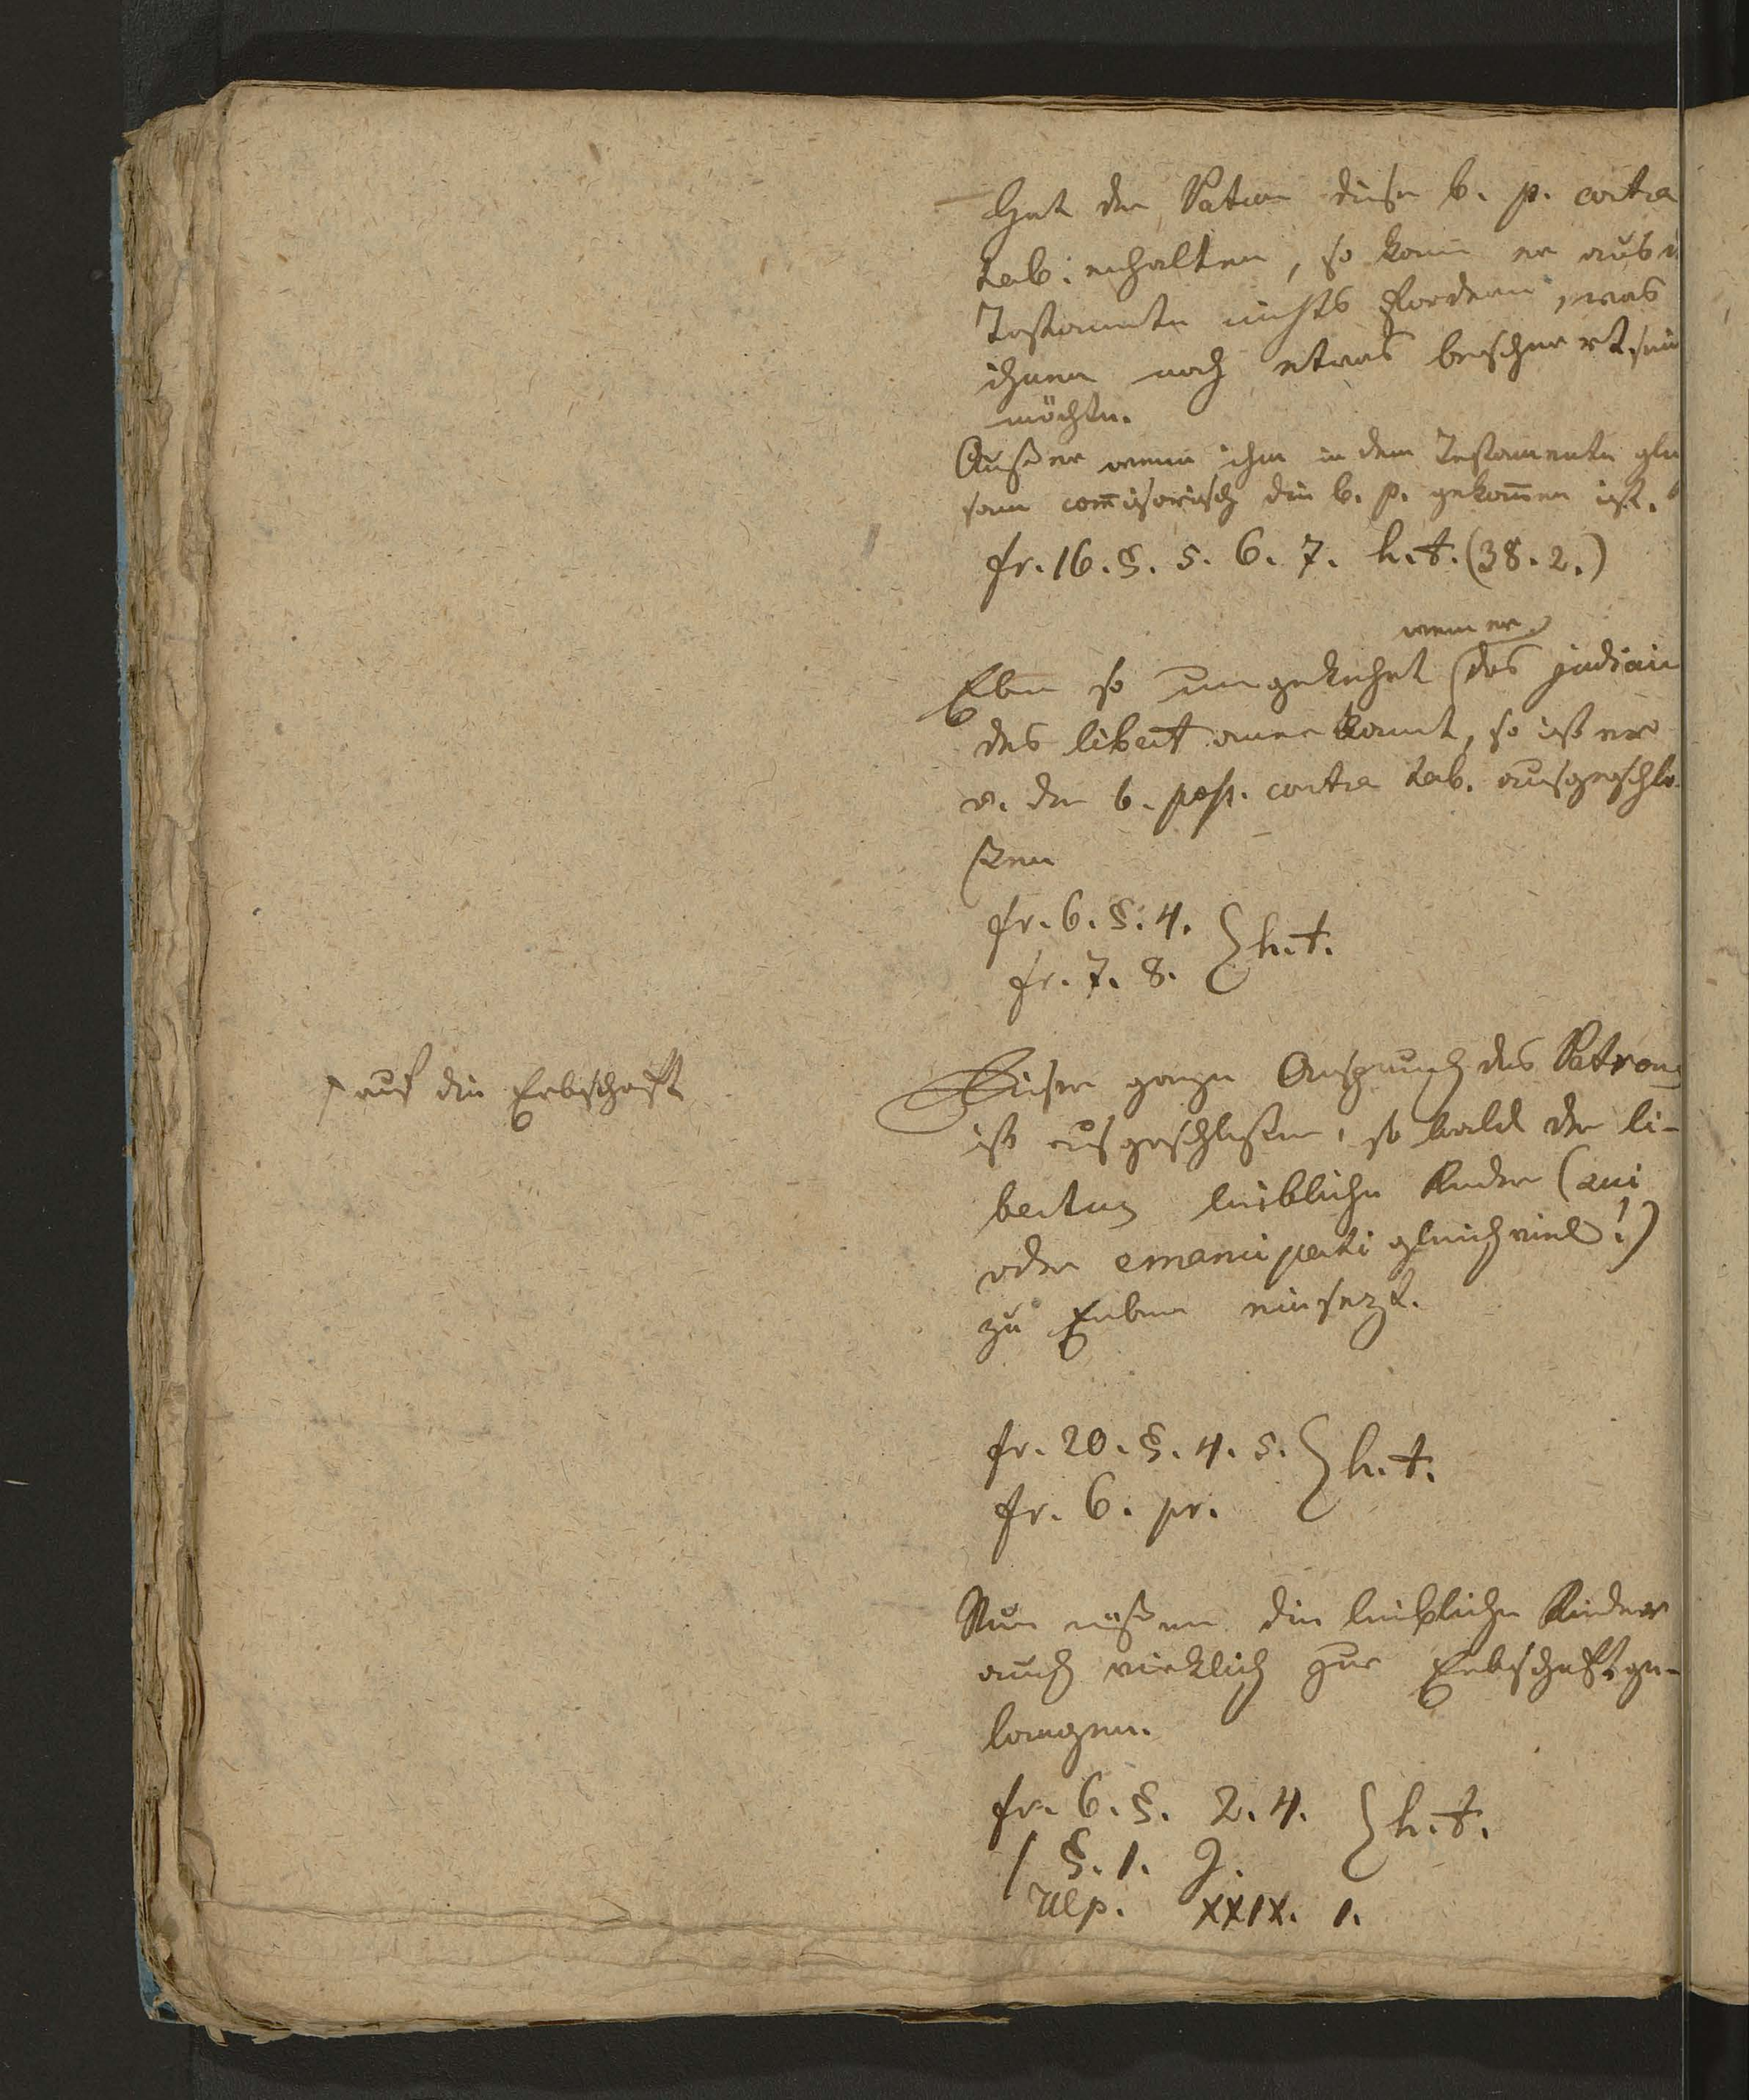 Hat der Patron diese b. p. contra
tab: erhalten, so kann er aus d
Testamente nichts fordern, was
ihnen noch etwas bescheert sein
möchte.
Außer wenn ihm in dem Testamente glei
sam com̄isorisch die b. p. gekom̄en ist.
fr. 16. §. 5. 6. 7. h. t. (38. 2.)
wenn er
Eben so umgekehrt das judiciu
des libert anerkannt, so ist er
v. der b. poss. contra tab. ausgeschlo
ßen
fr. 6. §. 4.
fr. 7. 8. } h. t.
auf die Erbschaft
Dieser ganze Anspruch des Patrons
ist ausgeschloßen, so bald der li-
bertus leibliche Kinder (sui
oder emancipati gleichviel!)
zu Erben einsezt.
fr. 20. §. 4. 5.
fr. 6. pr. } h. t.
Nun müßen die leiblichen Kinder
auch wirklich zur Erbschaft ge-
langen.
fr. 6. §. 2. 4. } h. t.
§. 1. J.
Ulp. XXIX. 1.